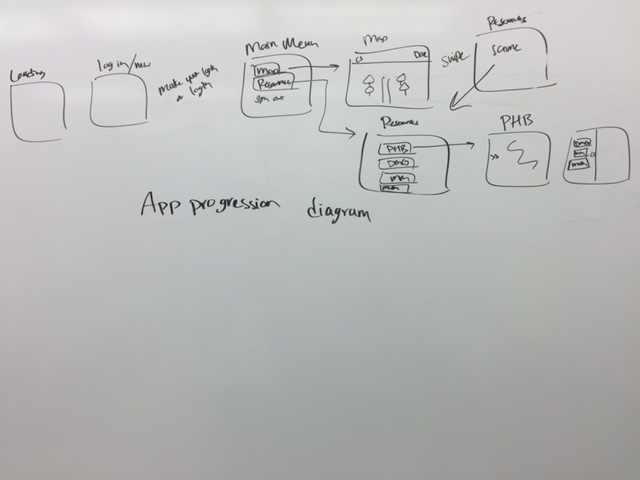 Loading
log in/new
make your login
or login
Main Menu
Map
Resources
Sign out
Map
CS
Dice
swipe
Resources
scribble
Resources
PHB
DMG
MM
PHB
>>
App progression diagram